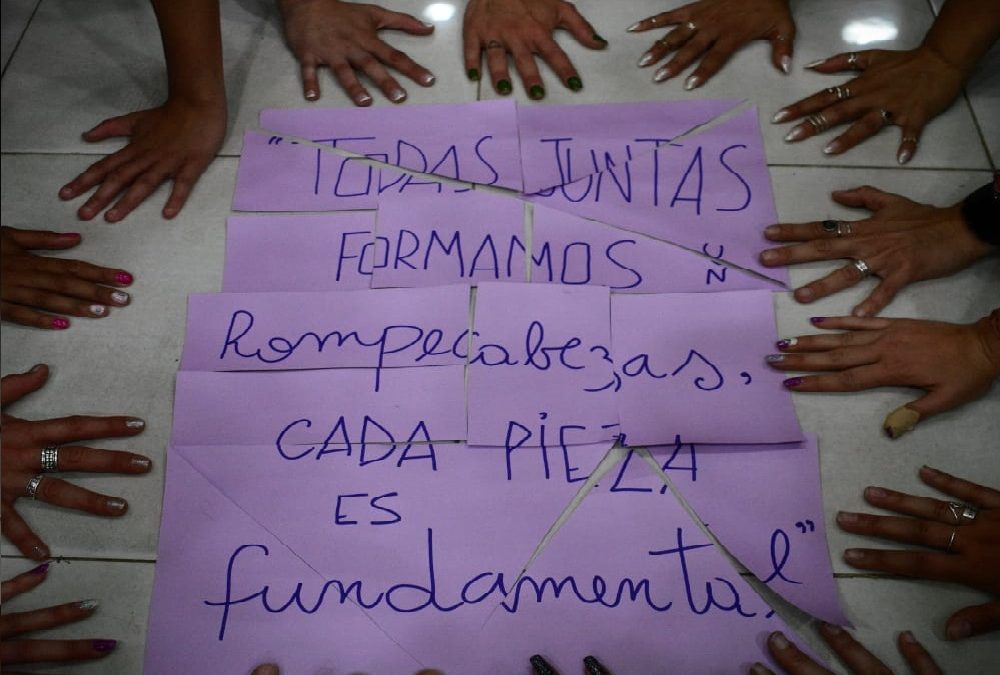 "TODAS JUNTAS
FORMAMOS UN
Rompecabezas,
CADA PiEZA
ES
fundamental"